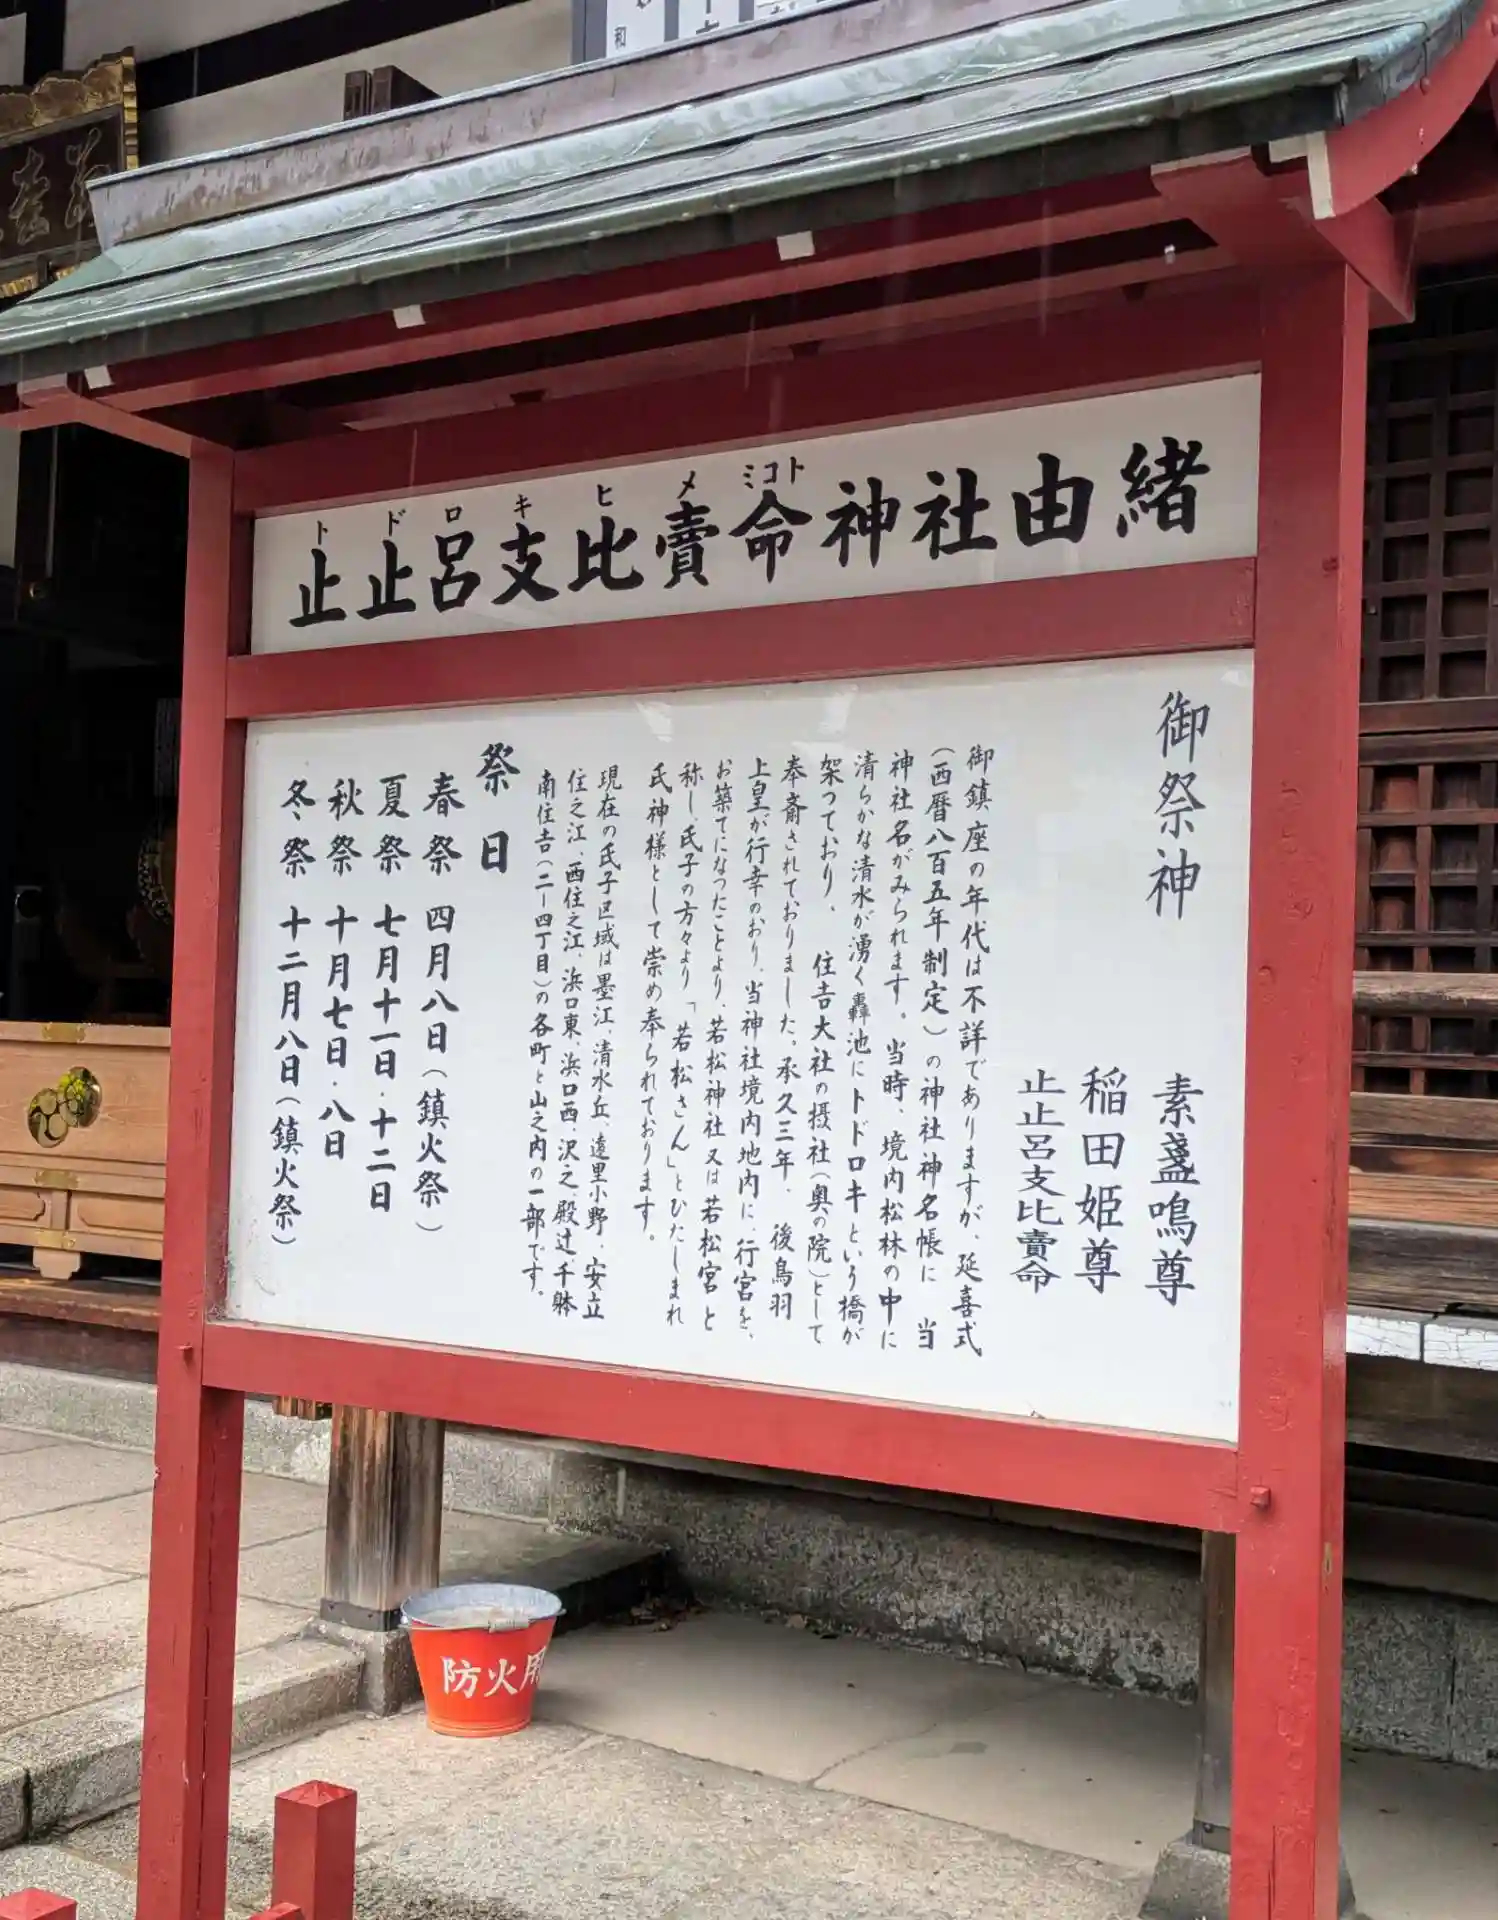 止止呂支比賣命神社由緒
トドロキヒメミコト
御祭神
素盞嗚尊
稲田姫尊
止止呂支比賣命
御鎮座の年代は不詳でありますが、延喜式
(西暦八百五年制定)の神社神名帳に 当
神社名がみられます。当時、境内松林の中に
清らかな清水が湧く轟池にトドロキという橋が
架つており、 住吉大社の摂社(奥の院)として
奉斎されておりました。承久三年、 後鳥羽
上皇が行幸のおり、当神社境内地内に、行宮を、
お築てになつたことより、若松神社又は若松宮 と
称し、氏子の方々より「若松さん」とひたしまれ
氏神様として崇め奉られております。
現在の氏子区域は墨江、清水丘、遠里小野、安立
住之江、西住之江、浜口東、浜口西、沢之、殿辻、千躰
南住吉(二ー四丁目)の各町と山之内の一部です。
祭日
春祭 四月八日(鎮火祭)
夏祭 七月十一日・十二日
秋祭 十月七日・八日
冬祭 十二月八日(鎮火祭)
防火用
和